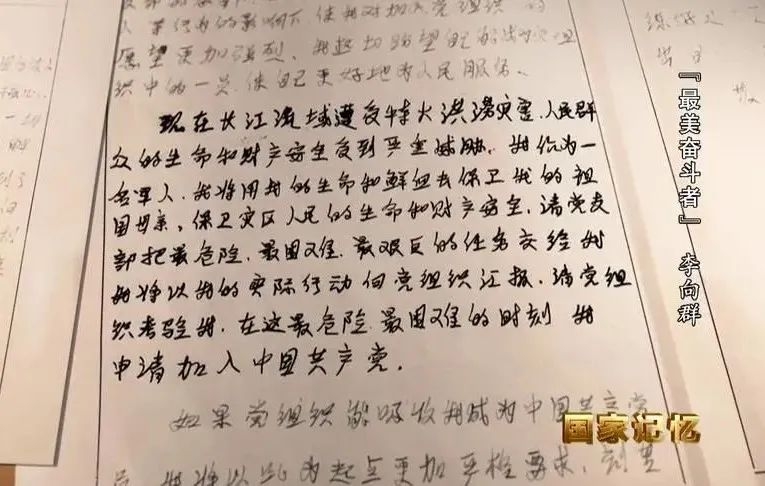 愿望更加强烈。我迫切盼望自己能成为党组
织中的一员，使自己更好地为人民服务。
现在长江流域遭受特大洪涝灾害，人民群
众的生命和财产安全受到严重威胁，我作为一
名军人，我将用我的生命和鲜血去保卫我的祖
国母亲，保卫灾区人民的生命和财产安全，请党支
部把最危险、最困难、最艰巨的任务交给我
我将以我的实际行动向党组织汇报，请党组
织考验我，在这最危险、最困难的时刻 我
申请加入中国共产党。
如果党组织能吸收我成为中国共产党
员，我将以此为起点更加严格要求，刻苦
『最美奋斗者』 李向群
国家记忆